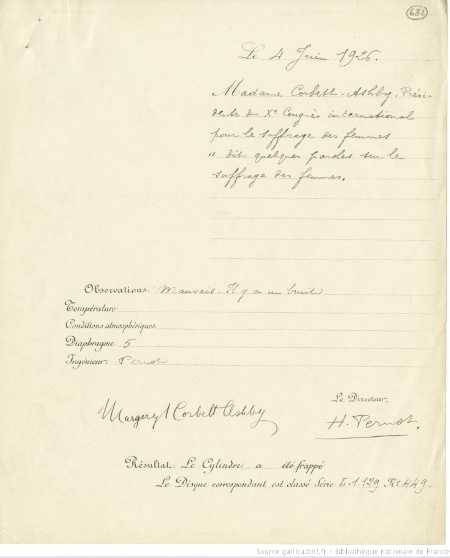 682
Le 4 Juin 1926.
Madame Corbett-Ashby, Prési-
dente du Xe Congrès international
pour le suffrage des femmes
a dit quelques paroles sur le
suffrage des femmes.
Observations: Mauvais. Il y a un bruit
Température
Conditions atmosphériques
Diaphragme 5
Ingénieur: Pernot
Le Directeur,
Margery Corbett Ashby
H. Pernot.
Résultat: Le Cylindre a été frappé
Le Disque correspondant est classé Série I.1.129 No 449.
Source gallica.bnf.fr / Bibliothèque nationale de France